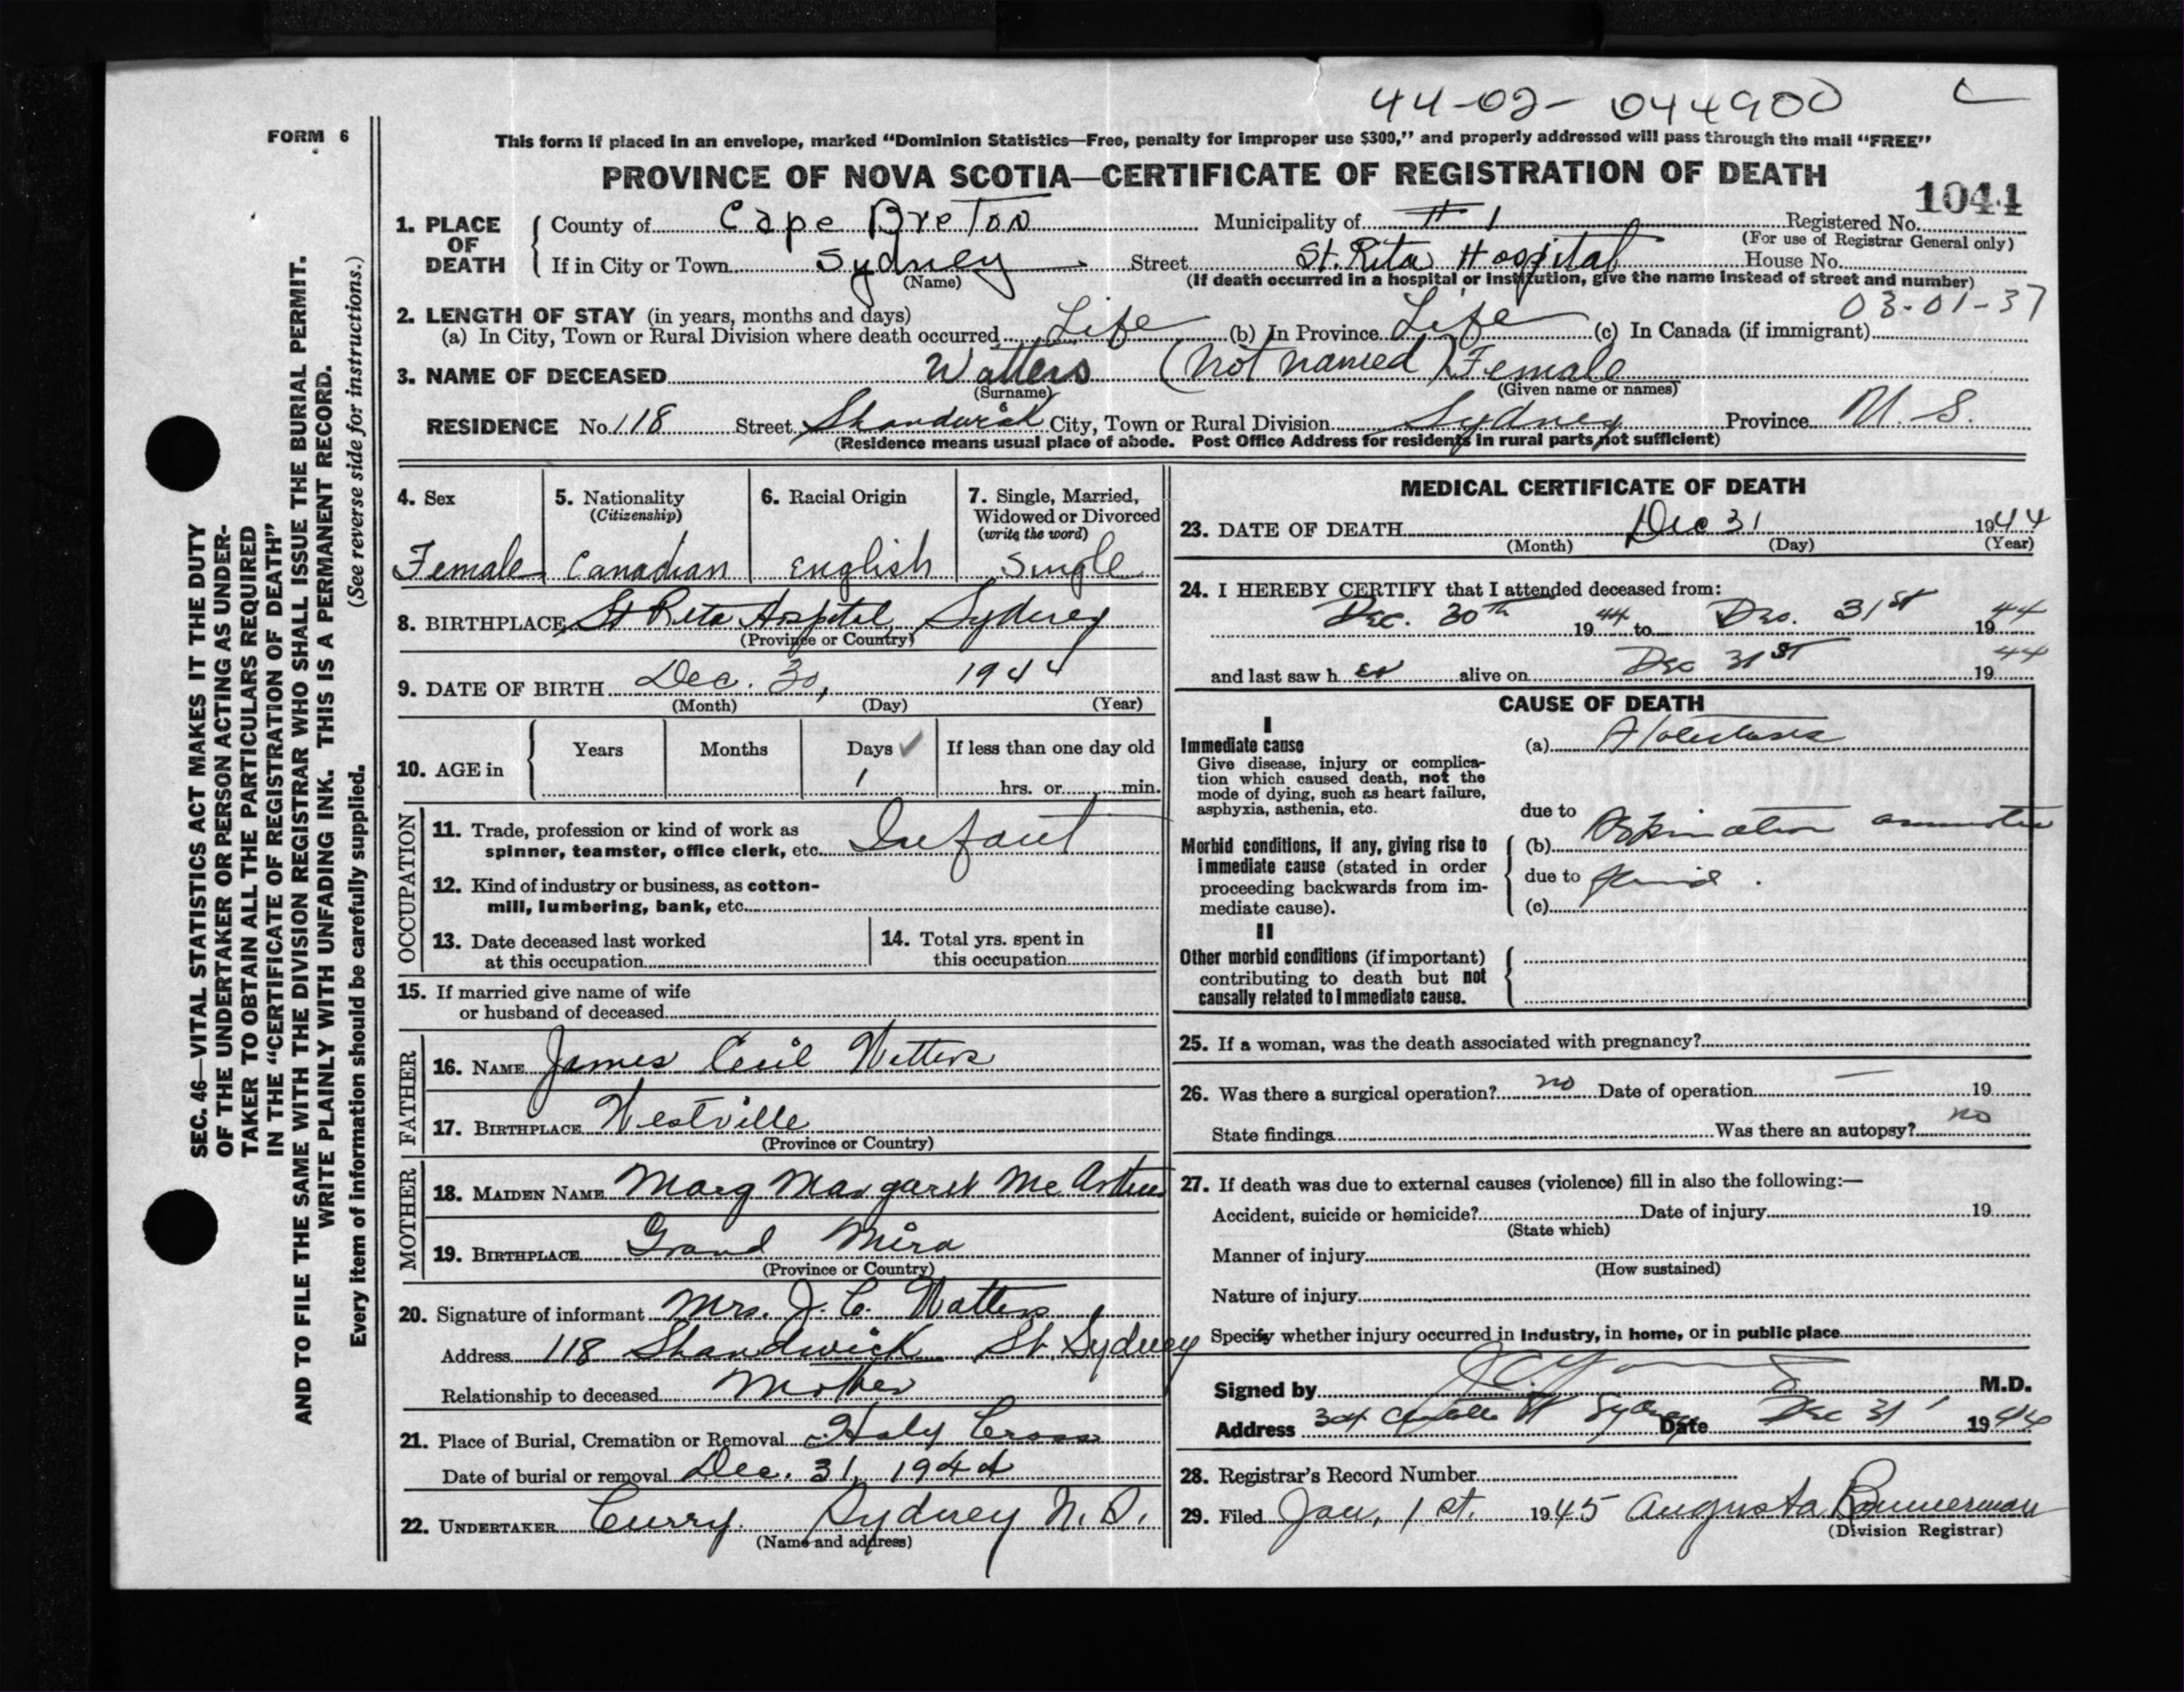 44-02-044900
FORM 6
This form if placed in an envelope, marked “Dominion Statistics—Free, penalty for improper use $300,” and properly addressed will pass through the mail “FREE”
PROVINCE OF NOVA SCOTIA—CERTIFICATE OF REGISTRATION OF DEATH
1044
1. PLACE OF DEATH { County of Cape Breton Municipality of # 1 Registered No.
(For use of Registrar General only)
If in City or Town Sydney Street St. Rita Hospital House No.
(Name) (If death occurred in a hospital or institution, give the name instead of street and number)
03-01-37
2. LENGTH OF STAY (in years, months and days)
(a) In City, Town or Rural Division where death occurred Life (b) In Province Life (c) In Canada (if immigrant)
3. NAME OF DECEASED Watters (Not named) Female
(Surname) (Given name or names)
RESIDENCE No. 118 Street Shandwick City, Town or Rural Division Sydney Province N. S.
(Residence means usual place of abode. Post Office Address for residents in rural parts not sufficient)
SEC. 46—VITAL STATISTICS ACT MAKES IT THE DUTY
OF THE UNDERTAKER OR PERSON ACTING AS UNDER-
TAKER TO OBTAIN ALL THE PARTICULARS REQUIRED
IN THE “CERTIFICATE OF REGISTRATION OF DEATH”
AND TO FILE THE SAME WITH THE DIVISION REGISTRAR WHO SHALL ISSUE THE BURIAL PERMIT.
WRITE PLAINLY WITH UNFADING INK. THIS IS A PERMANENT RECORD.
Every item of information should be carefully supplied. (See reverse side for instructions.)
4. Sex
Female
5. Nationality
(Citizenship)
Canadian
6. Racial Origin
English
7. Single, Married,
Widowed or Divorced
(write the word)
Single
8. BIRTHPLACE St Rita Hospital, Sydney
(Province or Country)
9. DATE OF BIRTH Dec. 30, 1944
(Month) (Day) (Year)
10. AGE in { Years Months Days ✓ If less than one day old
1 hrs. or min.
OCCUPATION
11. Trade, profession or kind of work as
spinner, teamster, office clerk, etc. Infant
12. Kind of industry or business, as cotton-
mill, lumbering, bank, etc.
13. Date deceased last worked
at this occupation
14. Total yrs. spent in
this occupation
15. If married give name of wife
or husband of deceased
FATHER
16. NAME James Cecil Watters
17. BIRTHPLACE Westville
(Province or Country)
MOTHER
18. MAIDEN NAME Mary Margaret Mc
19. BIRTHPLACE Grand Mira
(Province or Country)
20. Signature of informant Mrs. J. C. Watters
Address 118 Shandwick St. Sydney
Relationship to deceased Mother
21. Place of Burial, Cremation or Removal Holy Cross
Date of burial or removal Dec. 31, 1944
22. UNDERTAKER Curry Sydney N. S.
(Name and address)
MEDICAL CERTIFICATE OF DEATH
23. DATE OF DEATH Dec 31 1944
(Month) (Day) (Year)
24. I HEREBY CERTIFY that I attended deceased from:
Dec. 30th 1944 to Dec. 31st 1944
and last saw her alive on Dec 31st 1944
CAUSE OF DEATH
I
Immediate cause
Give disease, injury or complica-
tion which caused death, not the
mode of dying, such as heart failure,
asphyxia, asthenia, etc.
(a) Atelectasis
due to
Morbid conditions, if any, giving rise to
immediate cause (stated in order
proceeding backwards from im-
mediate cause).
(b) Aspiration
due to fluid.
(c)
II
Other morbid conditions (if important)
contributing to death but not
causally related to immediate cause.
25. If a woman, was the death associated with pregnancy?
26. Was there a surgical operation? no Date of operation — 19
State findings Was there an autopsy? no
27. If death was due to external causes (violence) fill in also the following:—
Accident, suicide or homicide? Date of injury 19
(State which)
Manner of injury
(How sustained)
Nature of injury
Specify whether injury occurred in Industry, in home, or in public place
Signed by M.D.
Address St Sydney Date Dec 31 1944
28. Registrar's Record Number
29. Filed Jan. 1st. 1945 Augusta Bannerman
(Division Registrar)